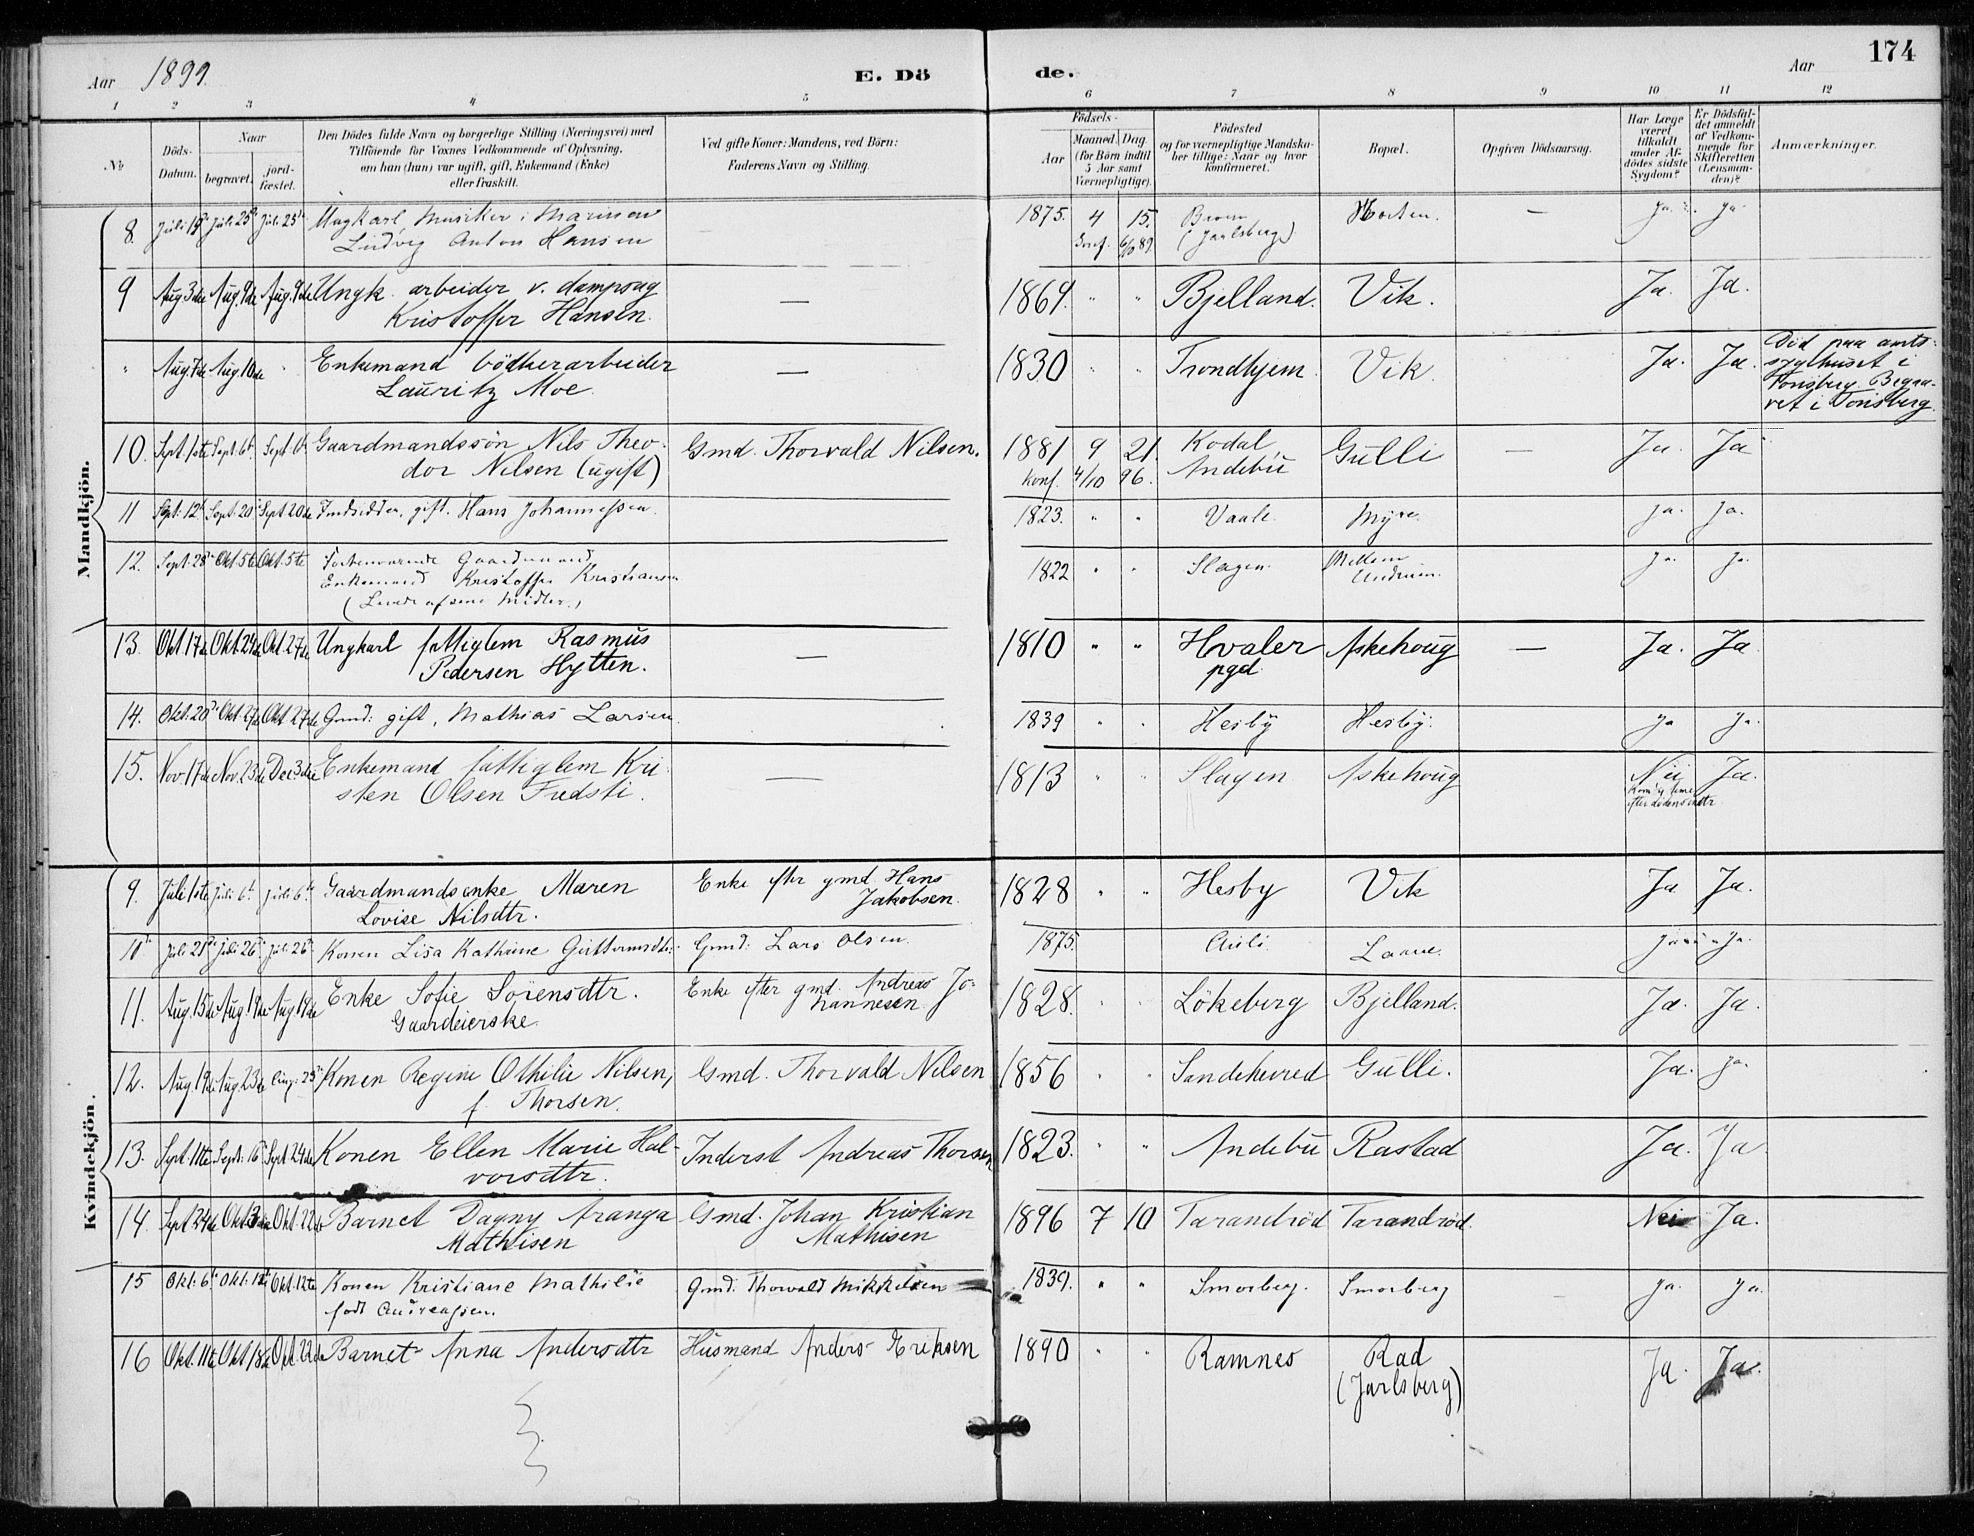 174
Aar 1899. E. Dö de. Aar
1 2 3 4 5 6 7 8 9 10 11 12
№
Döds-Datum.
Naar
begravet. jord-fæstet.
Den Dödes fulde Navn og borgerlige Stilling (Næringsvei) med
Tilföiende for Voxnes Vedkommende af Oplysning,
om han (hun) var ugift, gift, Enkemand (Enke)
eller fraskilt.
Ved gifte Koner: Mandens, ved Börn:
Faderens Navn og Stilling.
Födsels-
Aar Maaned. Dag.
(for Börn indtil
5 Aar samt
Værnepligtige).
Födested
og for værnepligtige Mandska-
ber tillige: Naar og hvor
konfirmeret.
Bopæl.
Opgiven Dödsaarsag.
Har Læge
været
tilkaldt
under Af-
dödes sidste
Sygdom?
Er Dödsfal-
det anmeldt
af Vedkom-
mende for
Skifteretten
(Lensman-
den)?
Anmærkninger.
Mandkjön.
8. Juli 19de Juli 25de Juli 25de Ungkarl, Musiker i Marinen 1875. 4 15. Horten. — Ja. Ja
Ludvig Anton Hansen Konf. 89 (Jarlsberg)
9 Aug 3die Aug. 9de Aug. 9de Ungk. arbeider v. dampsag — 1869. " " Bjelland. Vik. Ja. Ja.
Kristoffer Hansen.
" Aug 7de Aug. 10de " Enkemand bödkerarbeider — 1830 " " Trondhjem. Vik. Ja. Ja. Död paa amts-
Lauritz Moe. sygehuset i
Tönsberg. Begra-
vet i Tönsberg.
10. Sept. 1ste Sept. 6te Sept. 6te Gaardmandssön Nils Theo- Gmd. Thorvald Nilsen. 1881 9 21. Kodal Gulli — Ja. Ja
dor Nilsen (ugift) Konf. 4/10 96. Andebu
11 Sept. 12te Sept. 20de Sept 20de Indsidder, gift. Hans Johannessen. 1823. " " Vaale. Myre. Ja. Ja.
12. Sept. 28de Okt. 5te Okt. 5te Gaardmand 1822 " " Slagen. Mellem
Enkemand Kristoffer Kristiansen Undrum. Ja. Ja.
( af sine Midler.)
13. Okt 17de Okt. 24de Okt. 27de Ungkarl fattiglem Rasmus — 1810 " " Hvaler Askehoug — Ja. Ja
Pedersen Hytten. pgd.
14. Okt. 20de Okt. 27de Okt. 27de Gmd: gift, Mathias Larsen. 1839 " " Hesby Hesby. Ja Ja.
15. Nov. 17de Nov. 23de Dec. 3die Enkemand fattiglem Kri- — 1813 " " Slagen Askehoug Nei Ja.
sten Olsen
Kvindekjön.
9. Juli 1ste Juli 6te Juli 6te Gaardmandsenke Maren Enke efter gmd. Hans 1828 " " Hesby Vik Ja Ja.
Lovise Nilsdtr. Jakobsen.
10 Juli 21de Juli 26de Juli 26de Konen Lisa Kathrine Guttormsdtr. Gmd: Lars Olsen. 1875. Auli. Ja Ja.
11. Aug. 15de Aug. 19de Aug 19de Enke Sofie Sörensdtr. Enke efter gmd. Andreas Jo- 1828. " " Lökeberg Bjelland. Ja. Ja.
Gaardeierske. hannesen
12. Aug 19de Aug. 23de Aug. 23de Konen Regine Othilie Nilsen, Gmd. Thorvald Nilsen 1856 " " Sandeherred Gulli. Ja. Ja.
f. Thorsen.
13. Sept. 11te Sept. 16de Sept 24de Konen Ellen Marie Hal- Inderst Andreas Thorsen 1823. " " Andebu Rastad Ja. Ja
vorsdtr.
14. Sept 24de Okt 3die Okt. 22de Barnet Dagny Aranga Gmd. Johan Kristian 1896 7 10 Tarandröd Tarandröd. Nei Ja.
Mathisen Mathisen
15 Okt. 6te Okt. 12te Okt. 12te Konen Kristiane Mathilie Gmd. Thorvald Mikkelsen 1839. " " Smorberg. Smorberg Ja. Ja.
födt
16 Okt. 11te Okt 18de Okt. 22de Barnet Anna Andersdtr Husmand Anders Eriksen 1890 " " Ramnes Rad Ja. Ja.
(Jarlsberg)